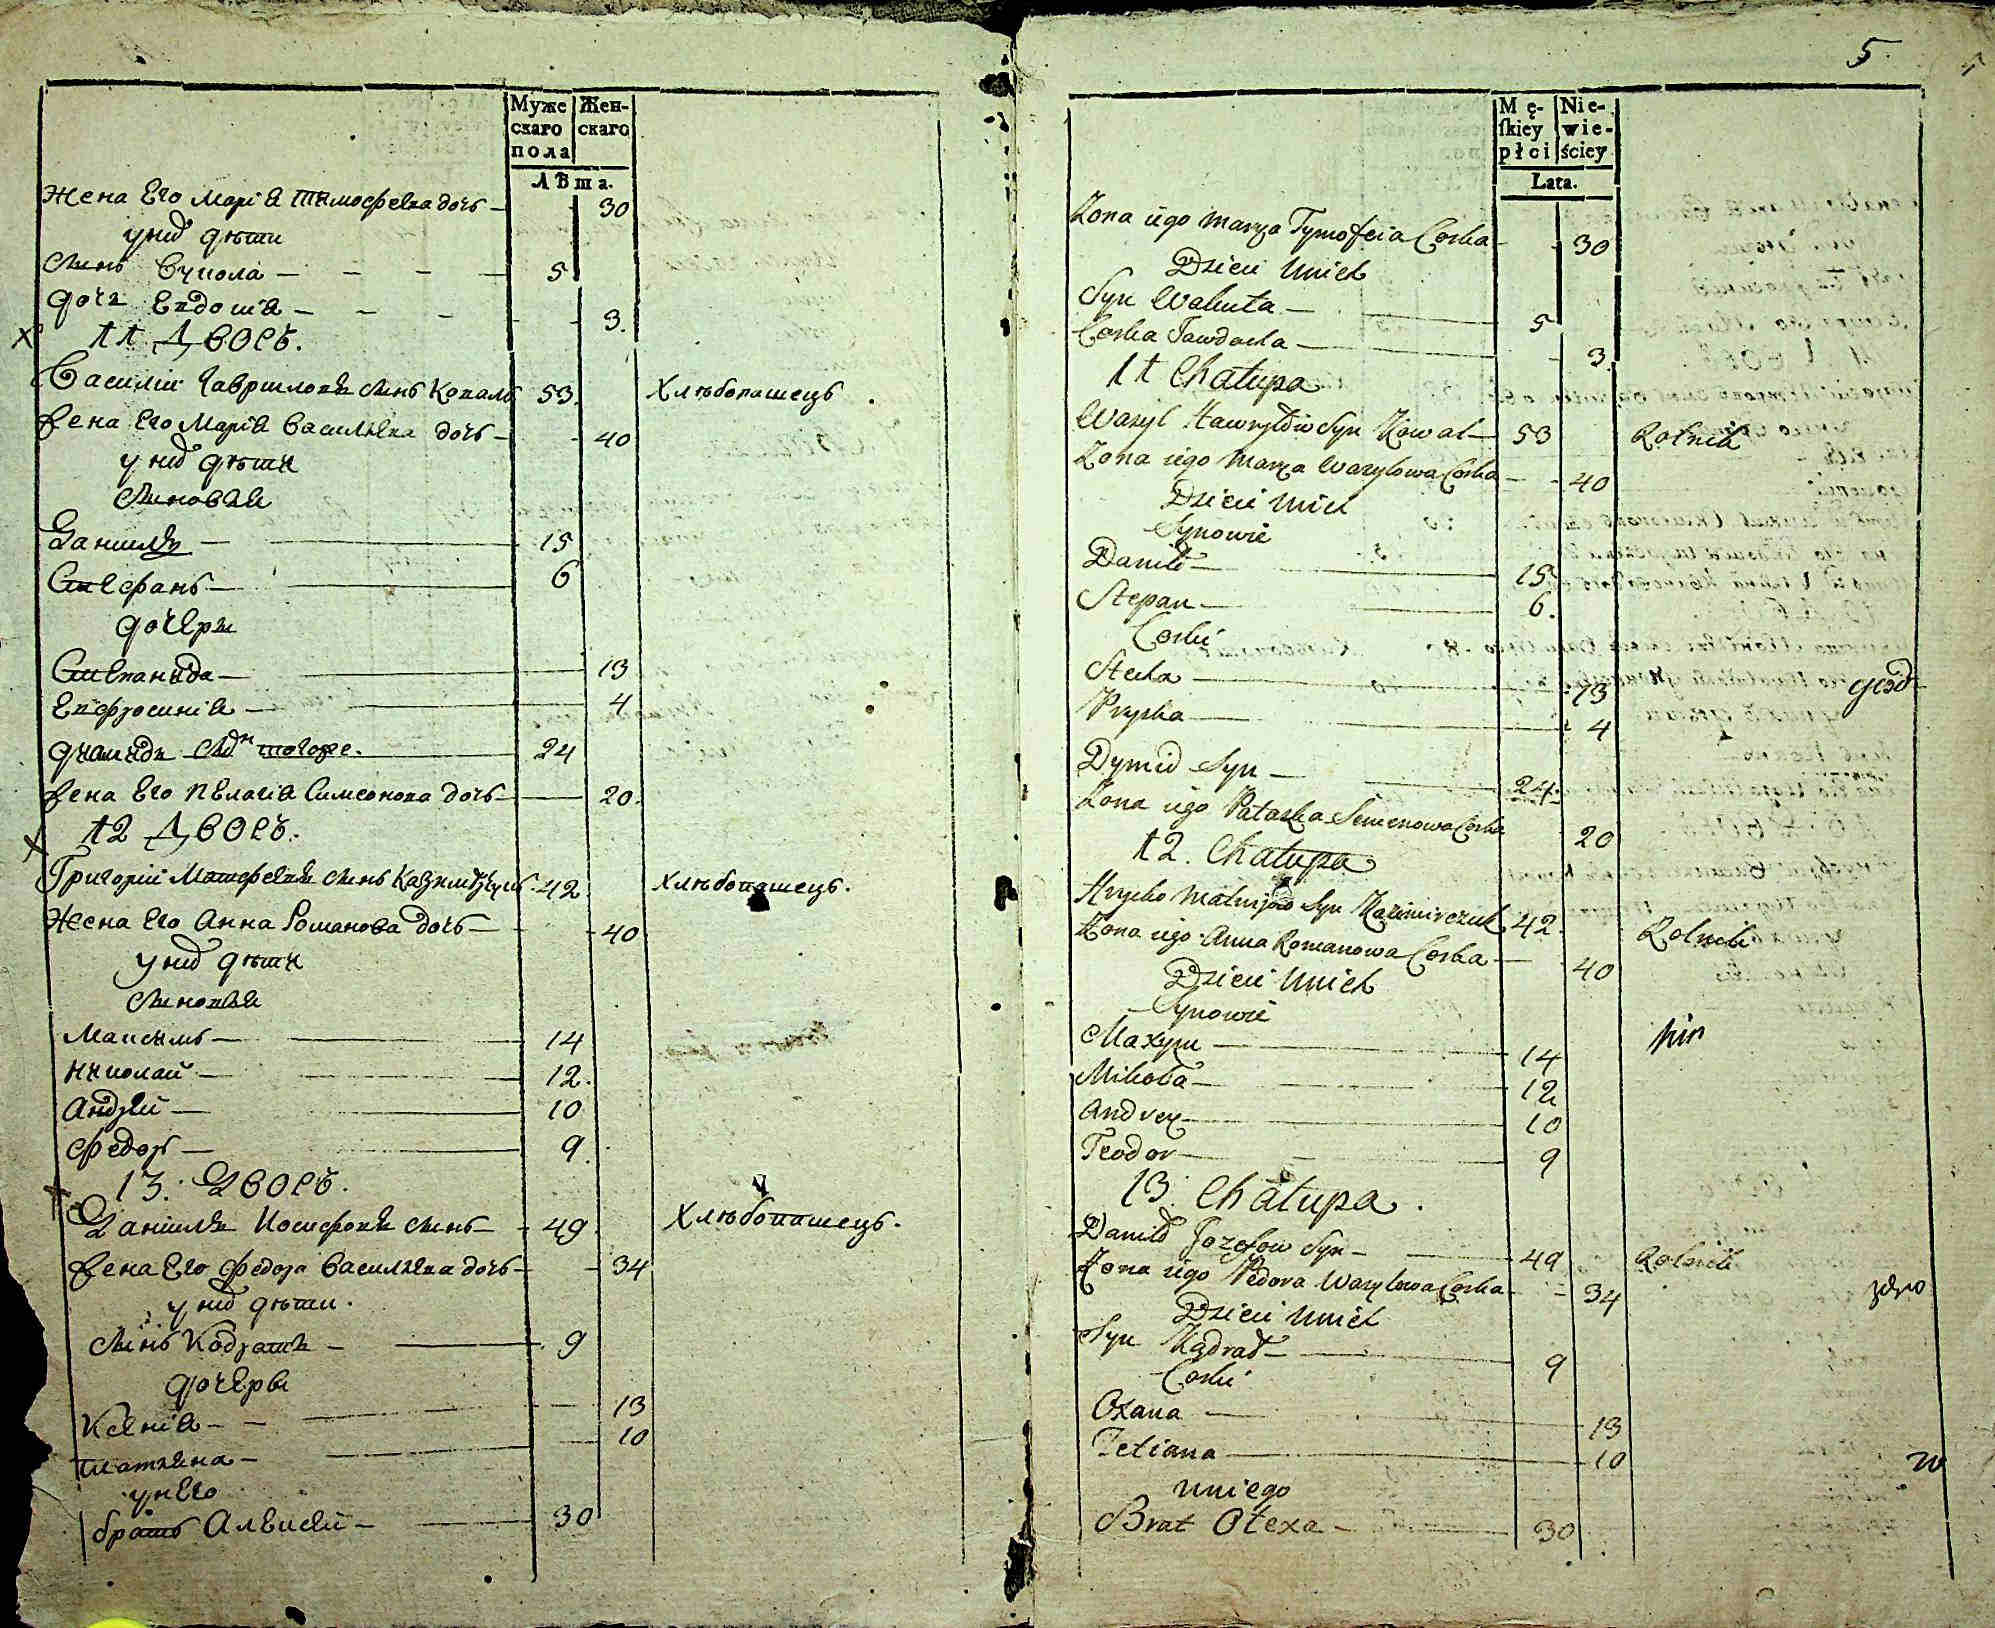 Муже Жен-
скаго скаго
пола
Лѣта.
Жена Его Марія Тимофеева дочъ — 30
у них дѣти
Синъ Вукола — 5
дочъ Евдошія — 3.
11 Дворъ.
Василій Гавриловъ синъ Коваль 53. Хлѣбопашецъ
Жена Его Марія Васильева дочъ — 40
у них дѣти
Синовья
Данилъ — 15
Стефанъ — 6
дочери
Степанида — 13
Евфросинія — 4
Синъ тогоже. — 24
Жена Его Пелагія Симеонова дочъ — 20.
12 Дворъ.
Григорій Матфеевъ синъ Казимирчукъ. 42. Хлѣбопашецъ.
Жена Его Анна Романова дочъ — 40
у них дѣти
Синовья
Максимъ — 14
Николай — 12.
Андрей — 10
Федоръ — 9.
13. Дворъ.
Данилъ Иосифовъ синъ — 49. Хлѣбопашецъ.
Жена Его Федора Васильева дочъ — 34
у них дѣти.
Синъ Кодратъ — 9
дочеры
Ксенія — 13
Татяна — 10
у него
братъ Алексей — 30
5.
Mę- Nie-
ſkiey wie-
płci ściey
Lata.
Zona iego Marya Tymofeia Corka — 30
Dzieci Unich
Syn Wakuła — 5
Corka Jawdocha — 3.
11 Chałupa
Wasyl Hawryłów Syn Kowal — 53 Rolnik
Zona iego Marya Wasylowa Corka — 40
Dzieci Unich
Synowie
Daniło — 15
Stepan — 6.
Corki
Stecha — 13
Pryska — 4
Dymid Syn — 24.
Zona iego Palaska Semenowa Corka 20
12. Chałupa
Hrycko Matwijów Syn Kazimirczuk 42. Rolnik
Zona iego Anna Romanowa Corka — 40
Dzieci Unich
Synowie
Maxym — 14
Mikoła — 12
Andrey — 10
Teodor — 9
13 Chałupa.
Daniło Jozefow Syn — 49 Rolnik
Zona iego Fedora Wasylowa Corka — 34
Dzieci Unich
Syn Kądrat — 9
Corki
Oxana — 13
Tetiana — 10
Uniego
Brat Ołexa — 30